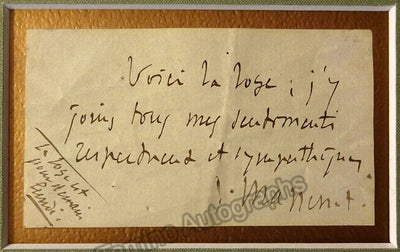 Voici la loge ; j'y
joins tous mes sentiments
respectueux et sympathiques
J. Massenet.
la loge est
pour demain
Lundi.
Tamino Autographs